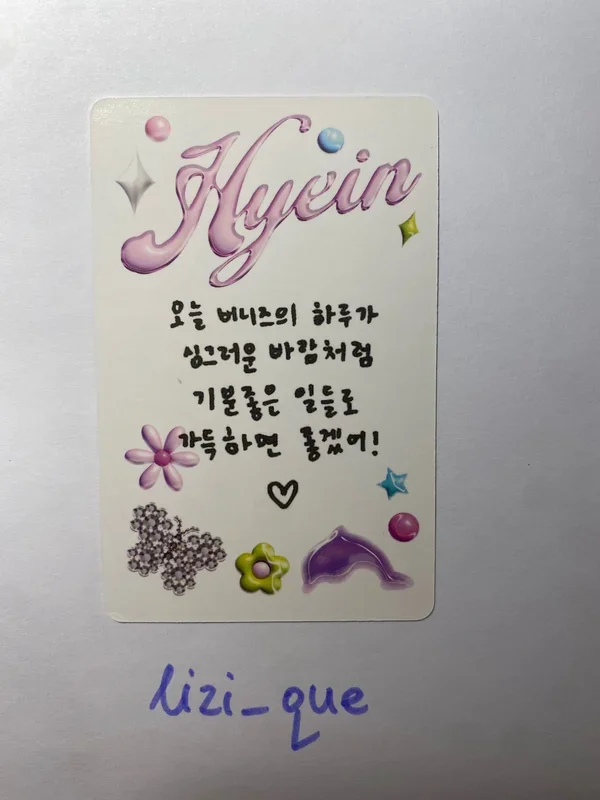 Hyein
오늘 버니즈의 하루가
싱그러운 바람처럼
기분좋은 일들로
가득하면 좋겠어!
lizi_que